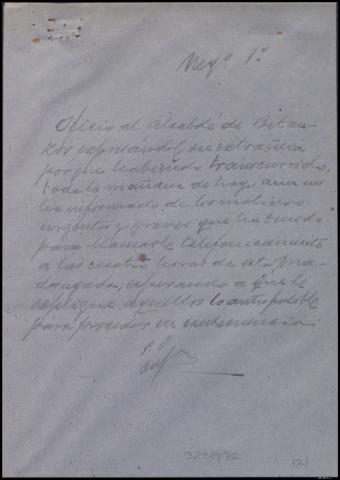 Negº 1º
Oficio al Alcalde de Betan-
zos expresándole mi extrañeza
porque habiendo transcurrido
toda la mañana de hoy, aun no
ha informado de los motivos
urgentes y graves que ha tenido
para llamarle telefonicamente
a las cuatro horas de esta ma-
drugada, esperando a que le
explique aquellos lo antes posible
para proceder en consecuencia.
(2)